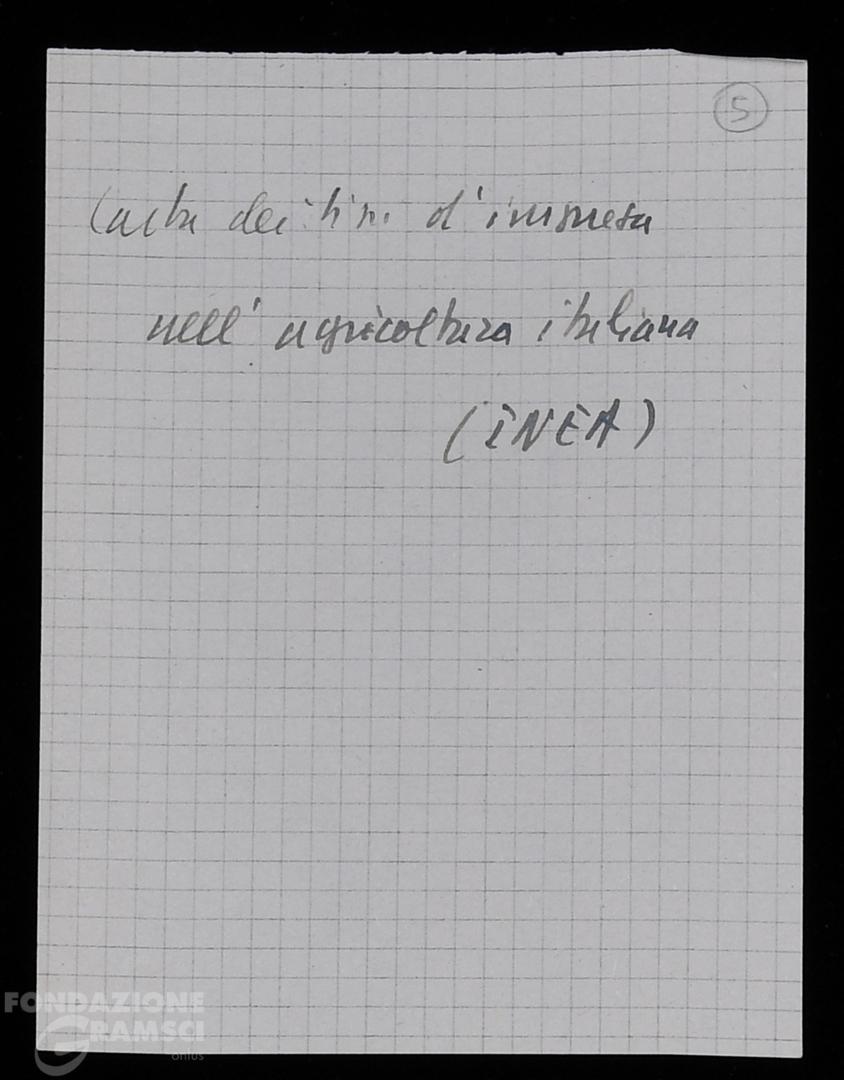 5
Carta dei tipi d'impresa
nell'agricoltura italiana
(INEA)
FONDAZIONE
GRAMSCI
onlus